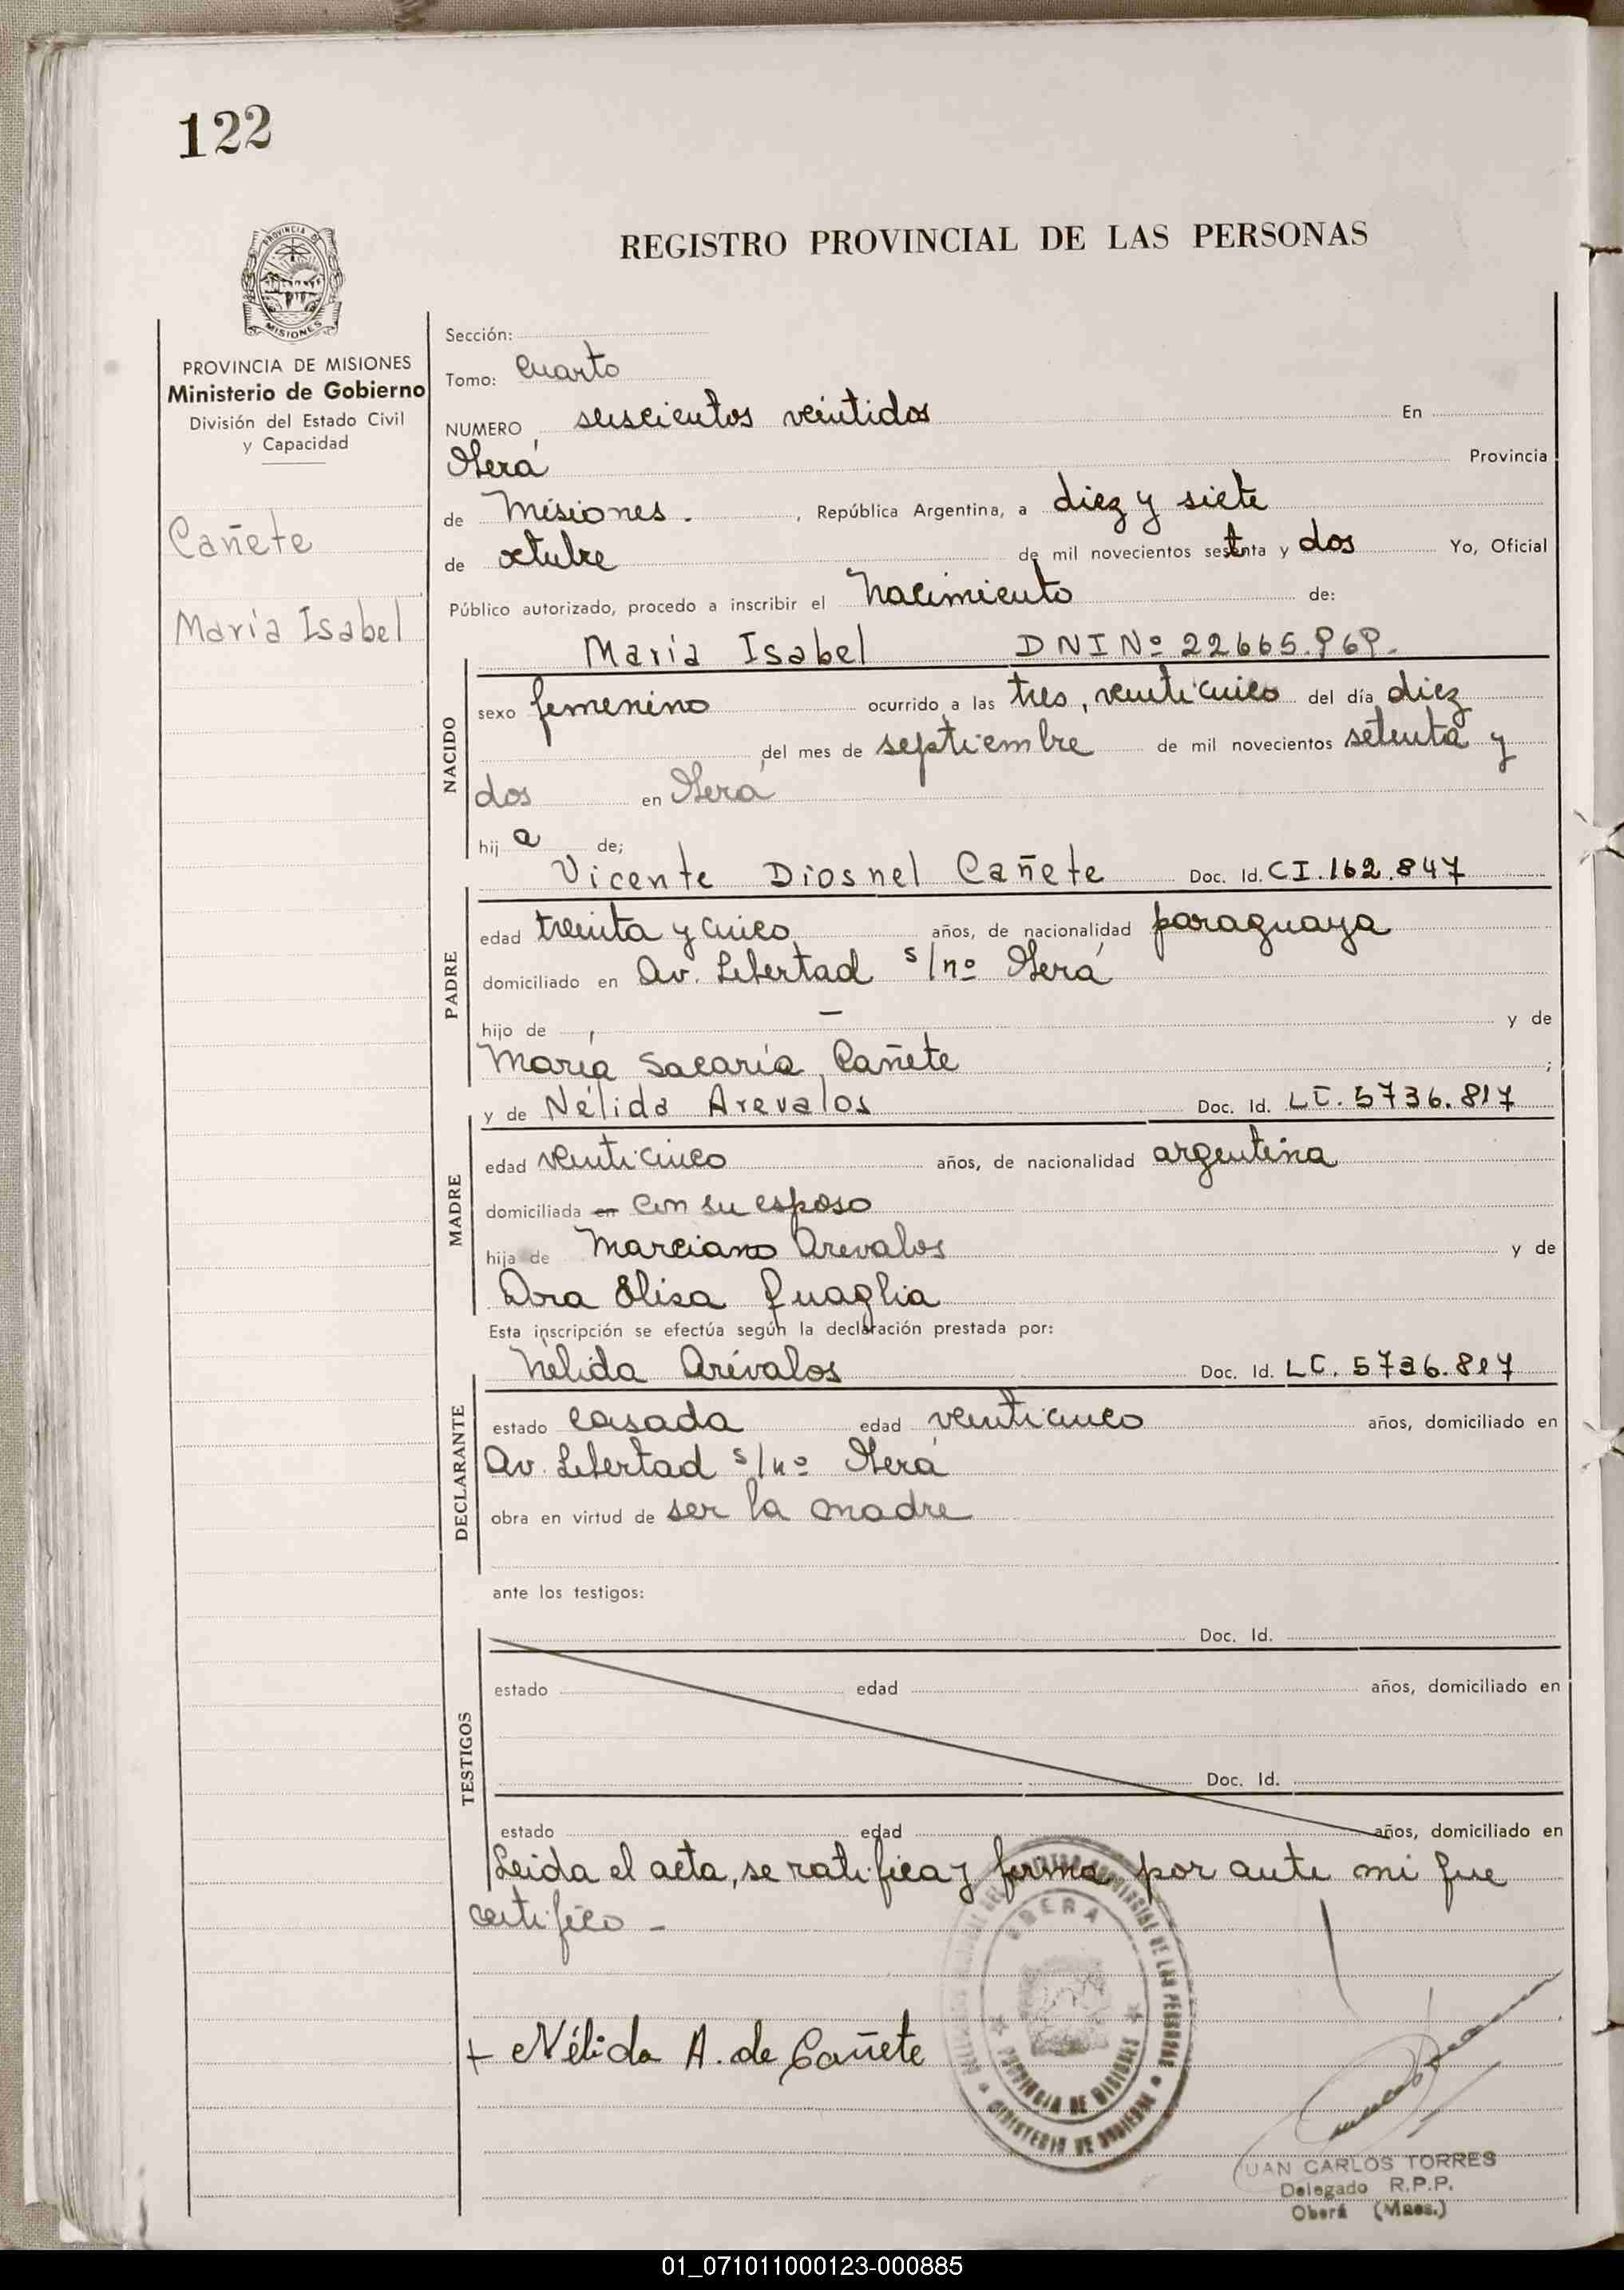 122
REGISTRO PROVINCIAL DE LAS PERSONAS
PROVINCIA DE MISIONES
Ministerio de Gobierno
División del Estado Civil
y Capacidad
Cañete
María Isabel
Sección:
Tomo: Cuarto
NUMERO seiscientos veintidos En
Oberá Provincia
de Misiones. , República Argentina, a diez y siete
de octubre de mil novecientos setenta y dos Yo, Oficial
Público autorizado, procedo a inscribir el Nacimiento de:
María Isabel DNI Nº 22665.969.
NACIDO
sexo femenino ocurrido a las tres, veinticinco del día diez
del mes de septiembre de mil novecientos setenta y
dos en Oberá
hij a de;
Vicente Diosnel Cañete Doc. Id. CI.162.847
PADRE
edad treinta y cinco años, de nacionalidad paraguaya
domiciliado en Av. Libertad s/nº Oberá
hijo de — y de
María Sacaría Cañete ;
y de Nélida Arevalos Doc. Id. LC. 5736.817
MADRE
edad veinticinco años, de nacionalidad argentina
domiciliada en con su esposo
hija de Marciano Arevalos y de
Dora Elisa Quaglia
Esta inscripción se efectúa según la declaración prestada por:
Nélida Arévalos Doc. Id. LC. 5736.817
DECLARANTE
estado casada edad veinticinco años, domiciliado en
Av. Libertad s/nº Oberá
obra en virtud de ser la madre
ante los testigos:
TESTIGOS
Doc. Id.
estado edad años, domiciliado en
Doc. Id.
estado edad años, domiciliado en
Leida el acta, se ratifica y firma por ante mi que
certifico -
OBERA
PROVINCIA DE MISIONES
MINISTERIO DE GOBIERNO
+ Nélida A. de Cañete
JUAN CARLOS TORRES
Delegado R.P.P.
Oberá (Mnes.)
01_071011000123-000885